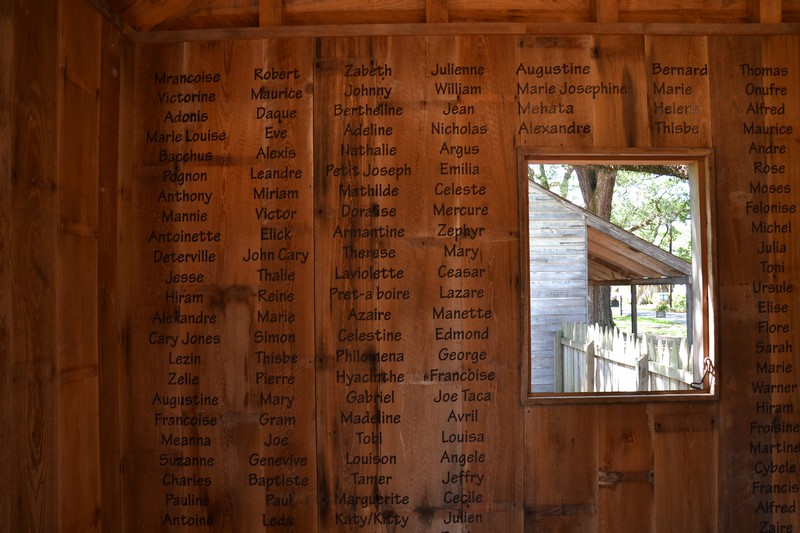 Mrancoise
Victorine
Adonis
Marie Louise
Bacchus
Pognon
Anthony
Mannie
Antoinette
Deterville
Jesse
Hiram
Alexandre
Cary Jones
Lezin
Zelie
Augustine
Francoise
Meanna
Suzanne
Charles
Pauline
Antoine
Robert
Maurice
Daque
Eve
Alexis
Leandre
Miriam
Victor
Elick
John Cary
Thalie
Reine
Marie
Simon
Thisbe
Pierre
Mary
Gram
Joe
Genevive
Baptiste
Paul
Leda
Zabeth
Johnny
Bertheline
Adeline
Nathalie
Petit Joseph
Mathilde
Doralise
Armantine
Therese
Laviolette
Pret-a boire
Azaire
Celestine
Philomena
Hyacinthe
Gabriel
Madeline
Tobi
Louison
Tamer
Marguerite
Katy/Kitty
Julienne
William
Jean
Nicholas
Argus
Emilia
Celeste
Mercure
Zephyr
Mary
Ceasar
Lazare
Manette
Edmond
George
Francoise
Joe Taca
Avril
Louisa
Angele
Jeffry
Cecile
Julien
Augustine
Marie Josephine
Mehata
Alexandre
Bernard
Marie
Helene
Thisbe
Thomas
Onufre
Alfred
Maurice
Andre
Rose
Moses
Felonise
Michel
Julia
Toni
Ursule
Elise
Flore
Sarah
Marie
Warner
Hiram
Froisine
Martine
Cybele
Francis
Alfred
Zaire